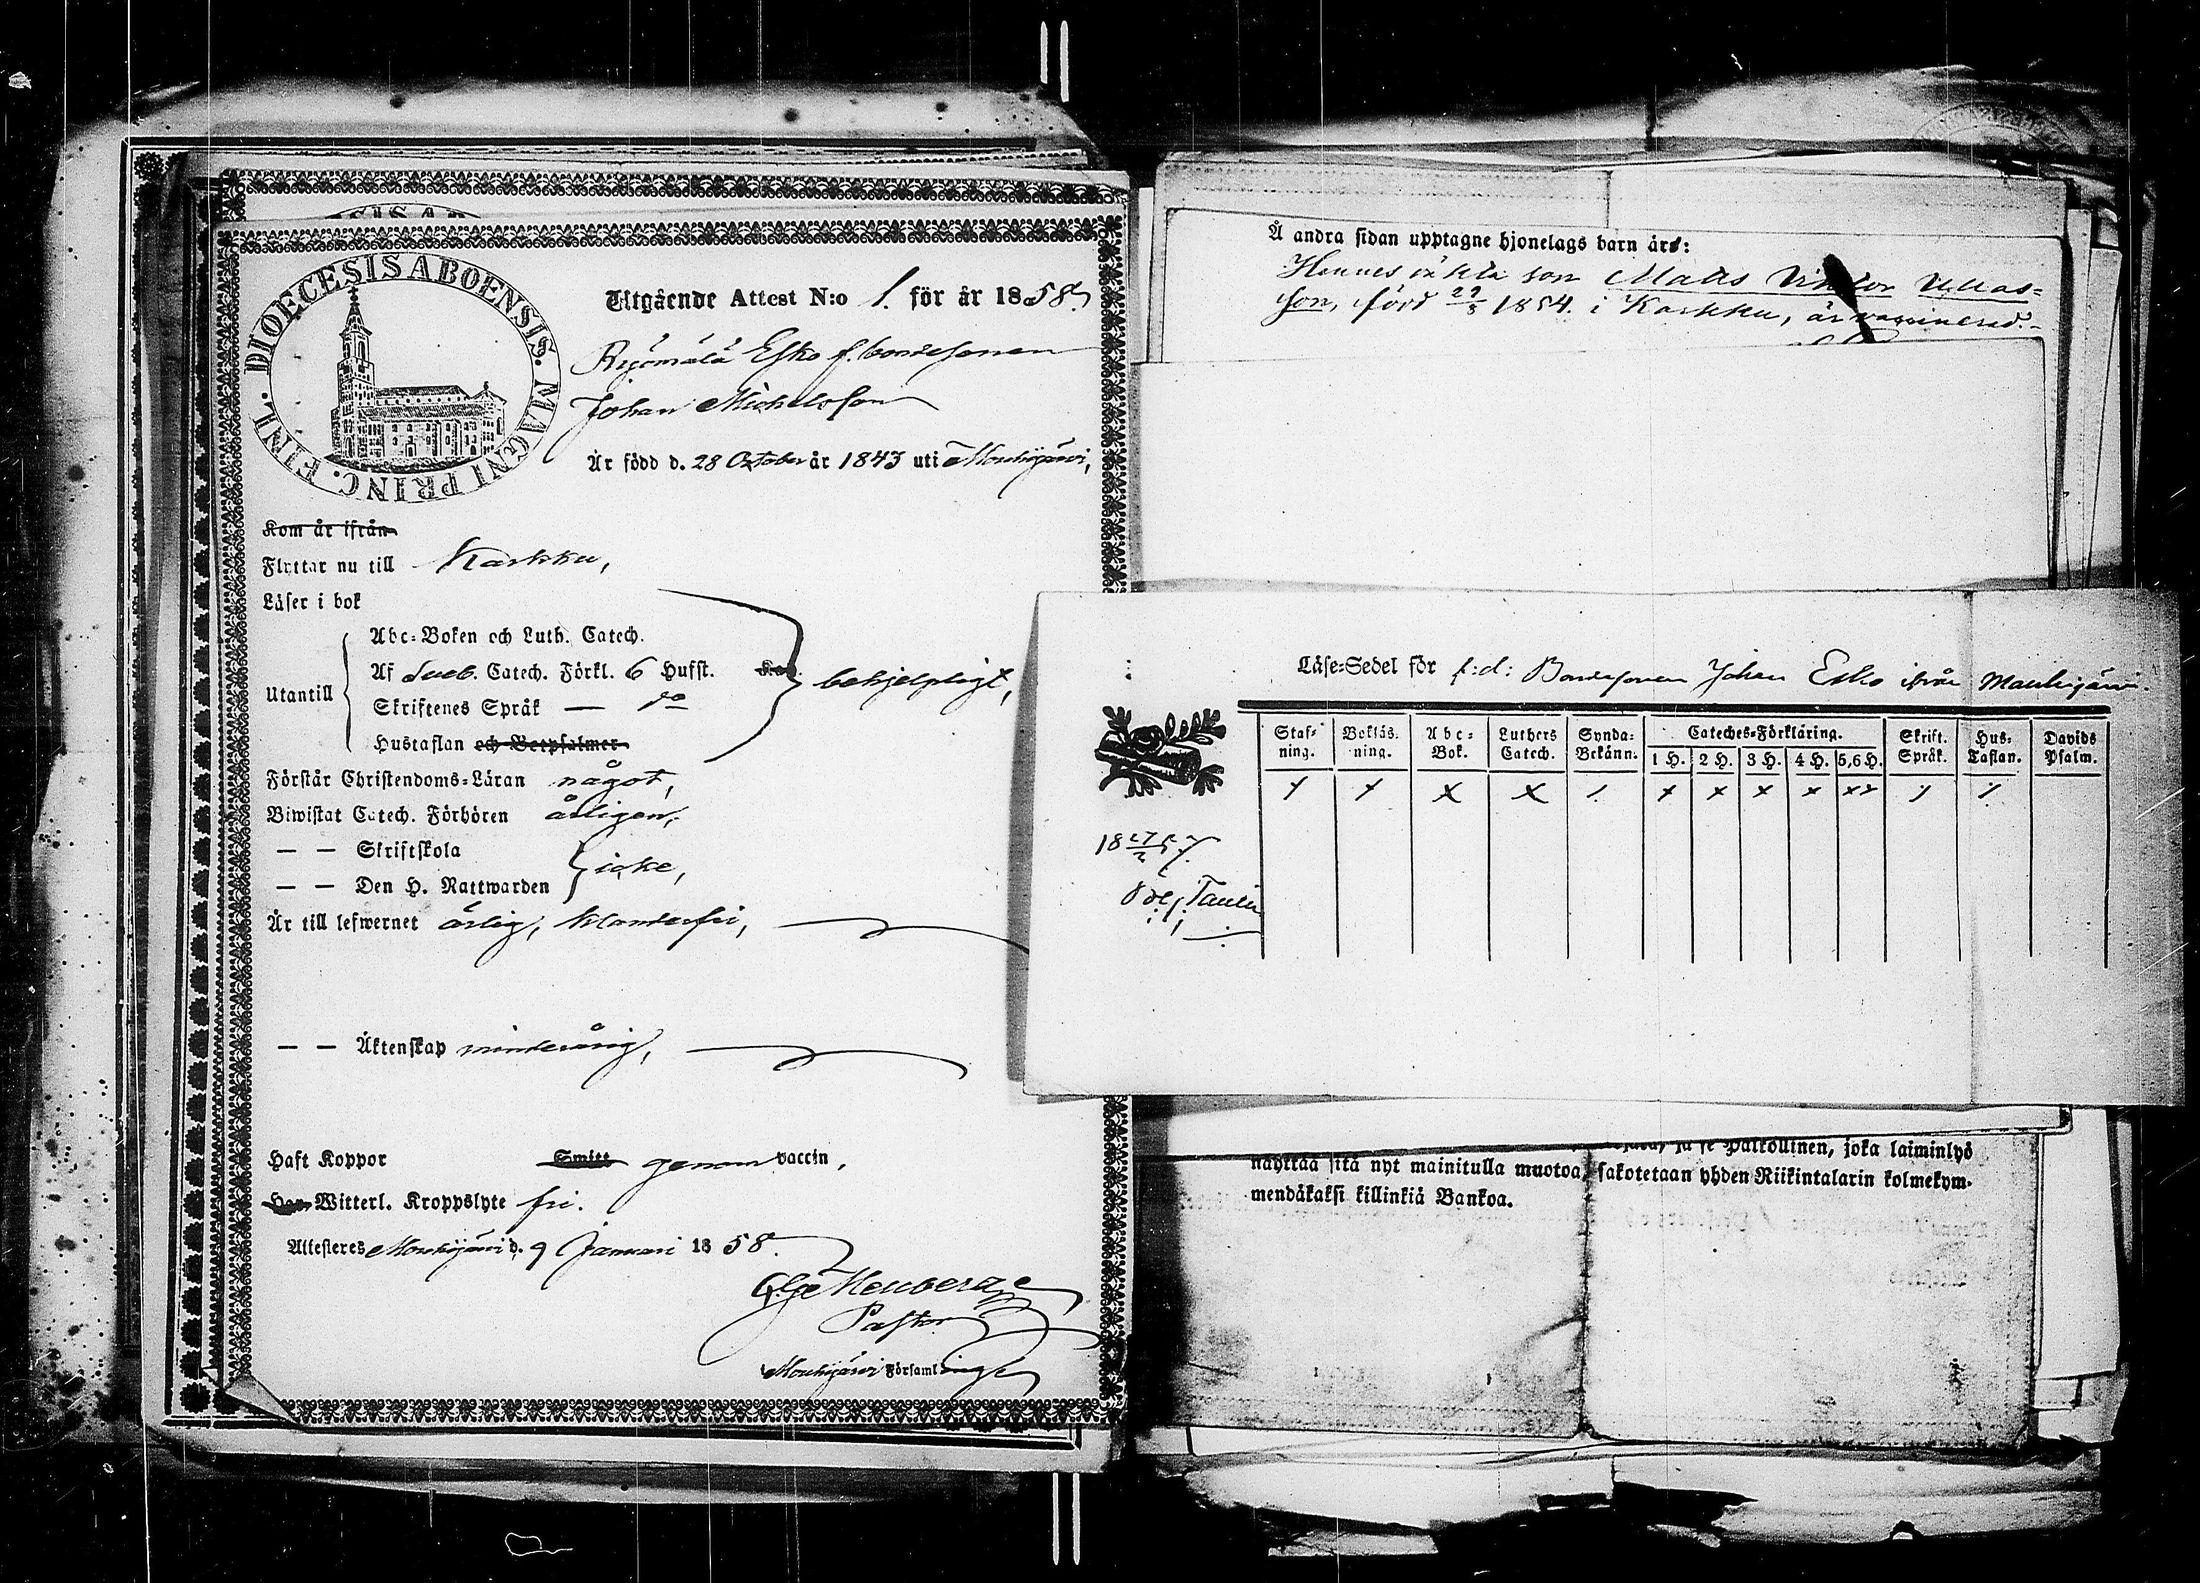 DIOECESIS ABOENSIS. MAGNI PRINC. FINL.
Utgående Attest N:o 1. för år 1858.
Rijömälä Esko f. bondesonen
Johan Michelsson
Är född d. 28 October år 1843 uti Mouhijärvi,
Kom år ifrån
Flyttar nu till Karkku,
Läser i bok
Utantill
Abc-Boken och Luth. Catech.
Af Sveb. Catech. Förkl. 6 Hufst.
Skriftenes Språk — do
Hustaflan och Botpsalmer
behjelpligt,
Förstår Christendoms-Läran något,
Biwistat Catech. Förhören årligen,
— — Skriftskola
— — Den H. Nattwarden
icke,
Är till lefwernet ärlig, klanderfri,
— — Äktenskap minderårig,
Haft Koppor Smitt genom vaccin,
Har Witterl. Kroppslyte fri.
Attesteras Mouhijärvi d. 9 Januari 1858.
Pastor
Mouhijärvi Församlings
Å andra sidan upptagne hjonelags barn äro:
Hennes oäkta son Matts Viktor
son, född 29/8 1854. i Karkku, är vaccinerad.
Läse-Sedel för f:d: Bondesonen Johan Esko ifrån Mouhijärvi.
Staf-ning. Bokläs-ning. Abc-Bok. Luthers Catech. Synda-Bekänn. Cateches-Förklaring. Skrift. Språk. Hus-Taflan. Davids Psalm.
1 H. 2 H. 3 H. 4 H. 5,6 H.
x x x x / x x x x xx / /
18 27/2 57
nähttää sitä nyt mainitulla muotoa, sakotetaan yhden Riikintalarin kolmekym-
ja se Palkollinen, joka laiminlyö
mendäkaksi killinkiä Bankoa.